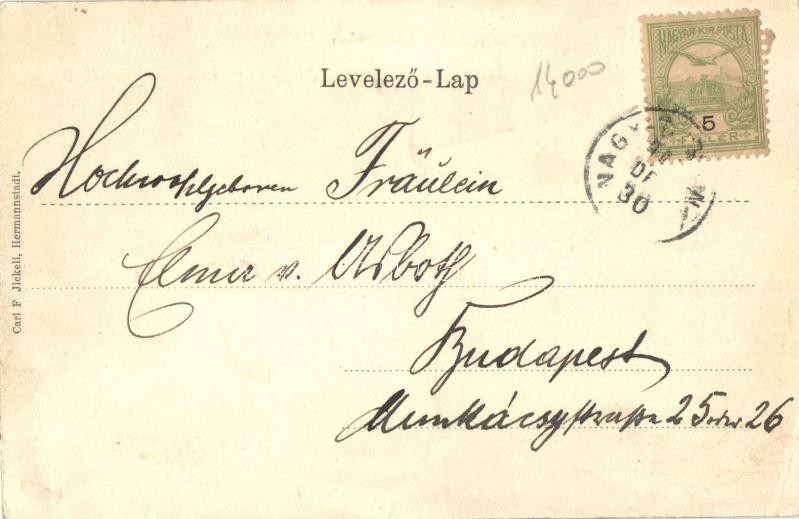 MAGYAR·KIR·POSTA
5
FILLÉR
14000
Levelező-Lap
NAGY
30
Hochwohlgeboren Fräulein
Elma v. Asboth
Budapest
Munkácsystraße 25 oder 26
Carl F Jickeli, Hermannstadt.